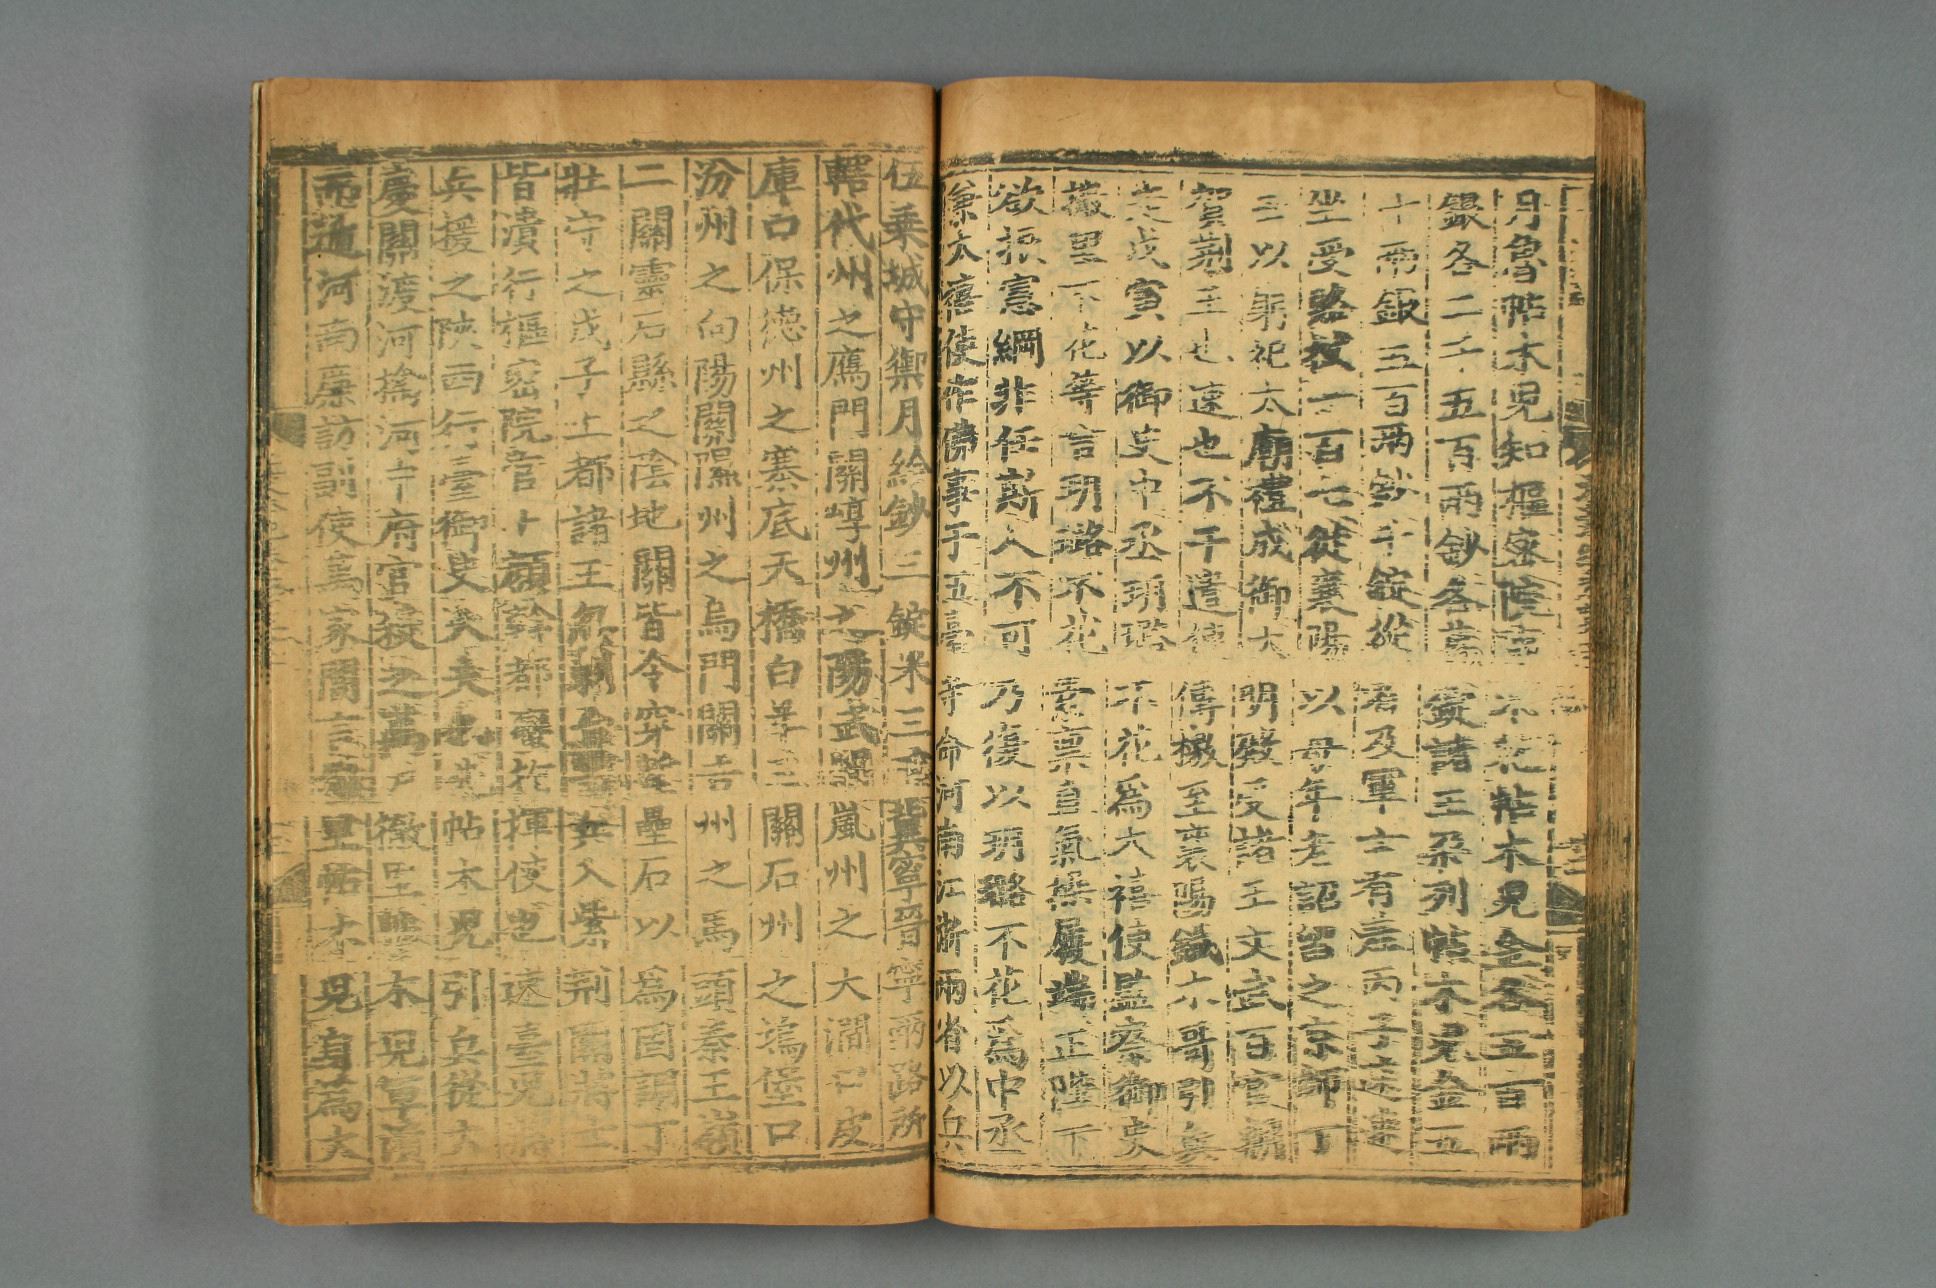 月魯帖木兒知樞密院事不花帖木兒金各五百兩
銀各二千五百兩鈔各萬錠諸王朶列帖木兒金五
十兩銀五百兩鈔千錠從者及軍士有差丙子速速
坐受賂杖一百七徙襄陽以母年老詔留之京師丁
丑以躬祀太廟禮成御大明殿受諸王文武百官朝
賀荆王也速也不干遣使傳檄至襄陽鐵木哥引兵
走戊寅以御史中丞玥璐不花爲太禧使監察御史
撒里不花等言玥璐不花素稟直氣操履端正陛下
欲振憲綱非任斯人不可乃復以玥璐不花爲中丞
兼太禧使作佛事于五臺寺命河南江浙兩省以兵
伍乘城守禦月給鈔三錠米三冀寧晉寧兩路所
轄代州之鴈門關崞州之陽武關嵐州之大澗口皮
庫口保德州之寨底天橋白羊三關石州之塢堡口
汾州之向陽關隰州之烏門關吉州之馬頭秦王嶺
二關靈石縣之陰地關皆令穿塹壘石以爲固調丁
壯守之戊子上都諸王忽剌台等兵入紫荆關將士
皆潰行樞密院官卜顏斡都蠻指揮使也速臺兒將
兵援之陝西行臺御史大夫也先帖木兒引兵從大
慶關渡河擒河中府官殺之萬戶徹里帖木兒軍潰
而遁河南廉訪副使萬家閭言徹里帖木兒身爲大